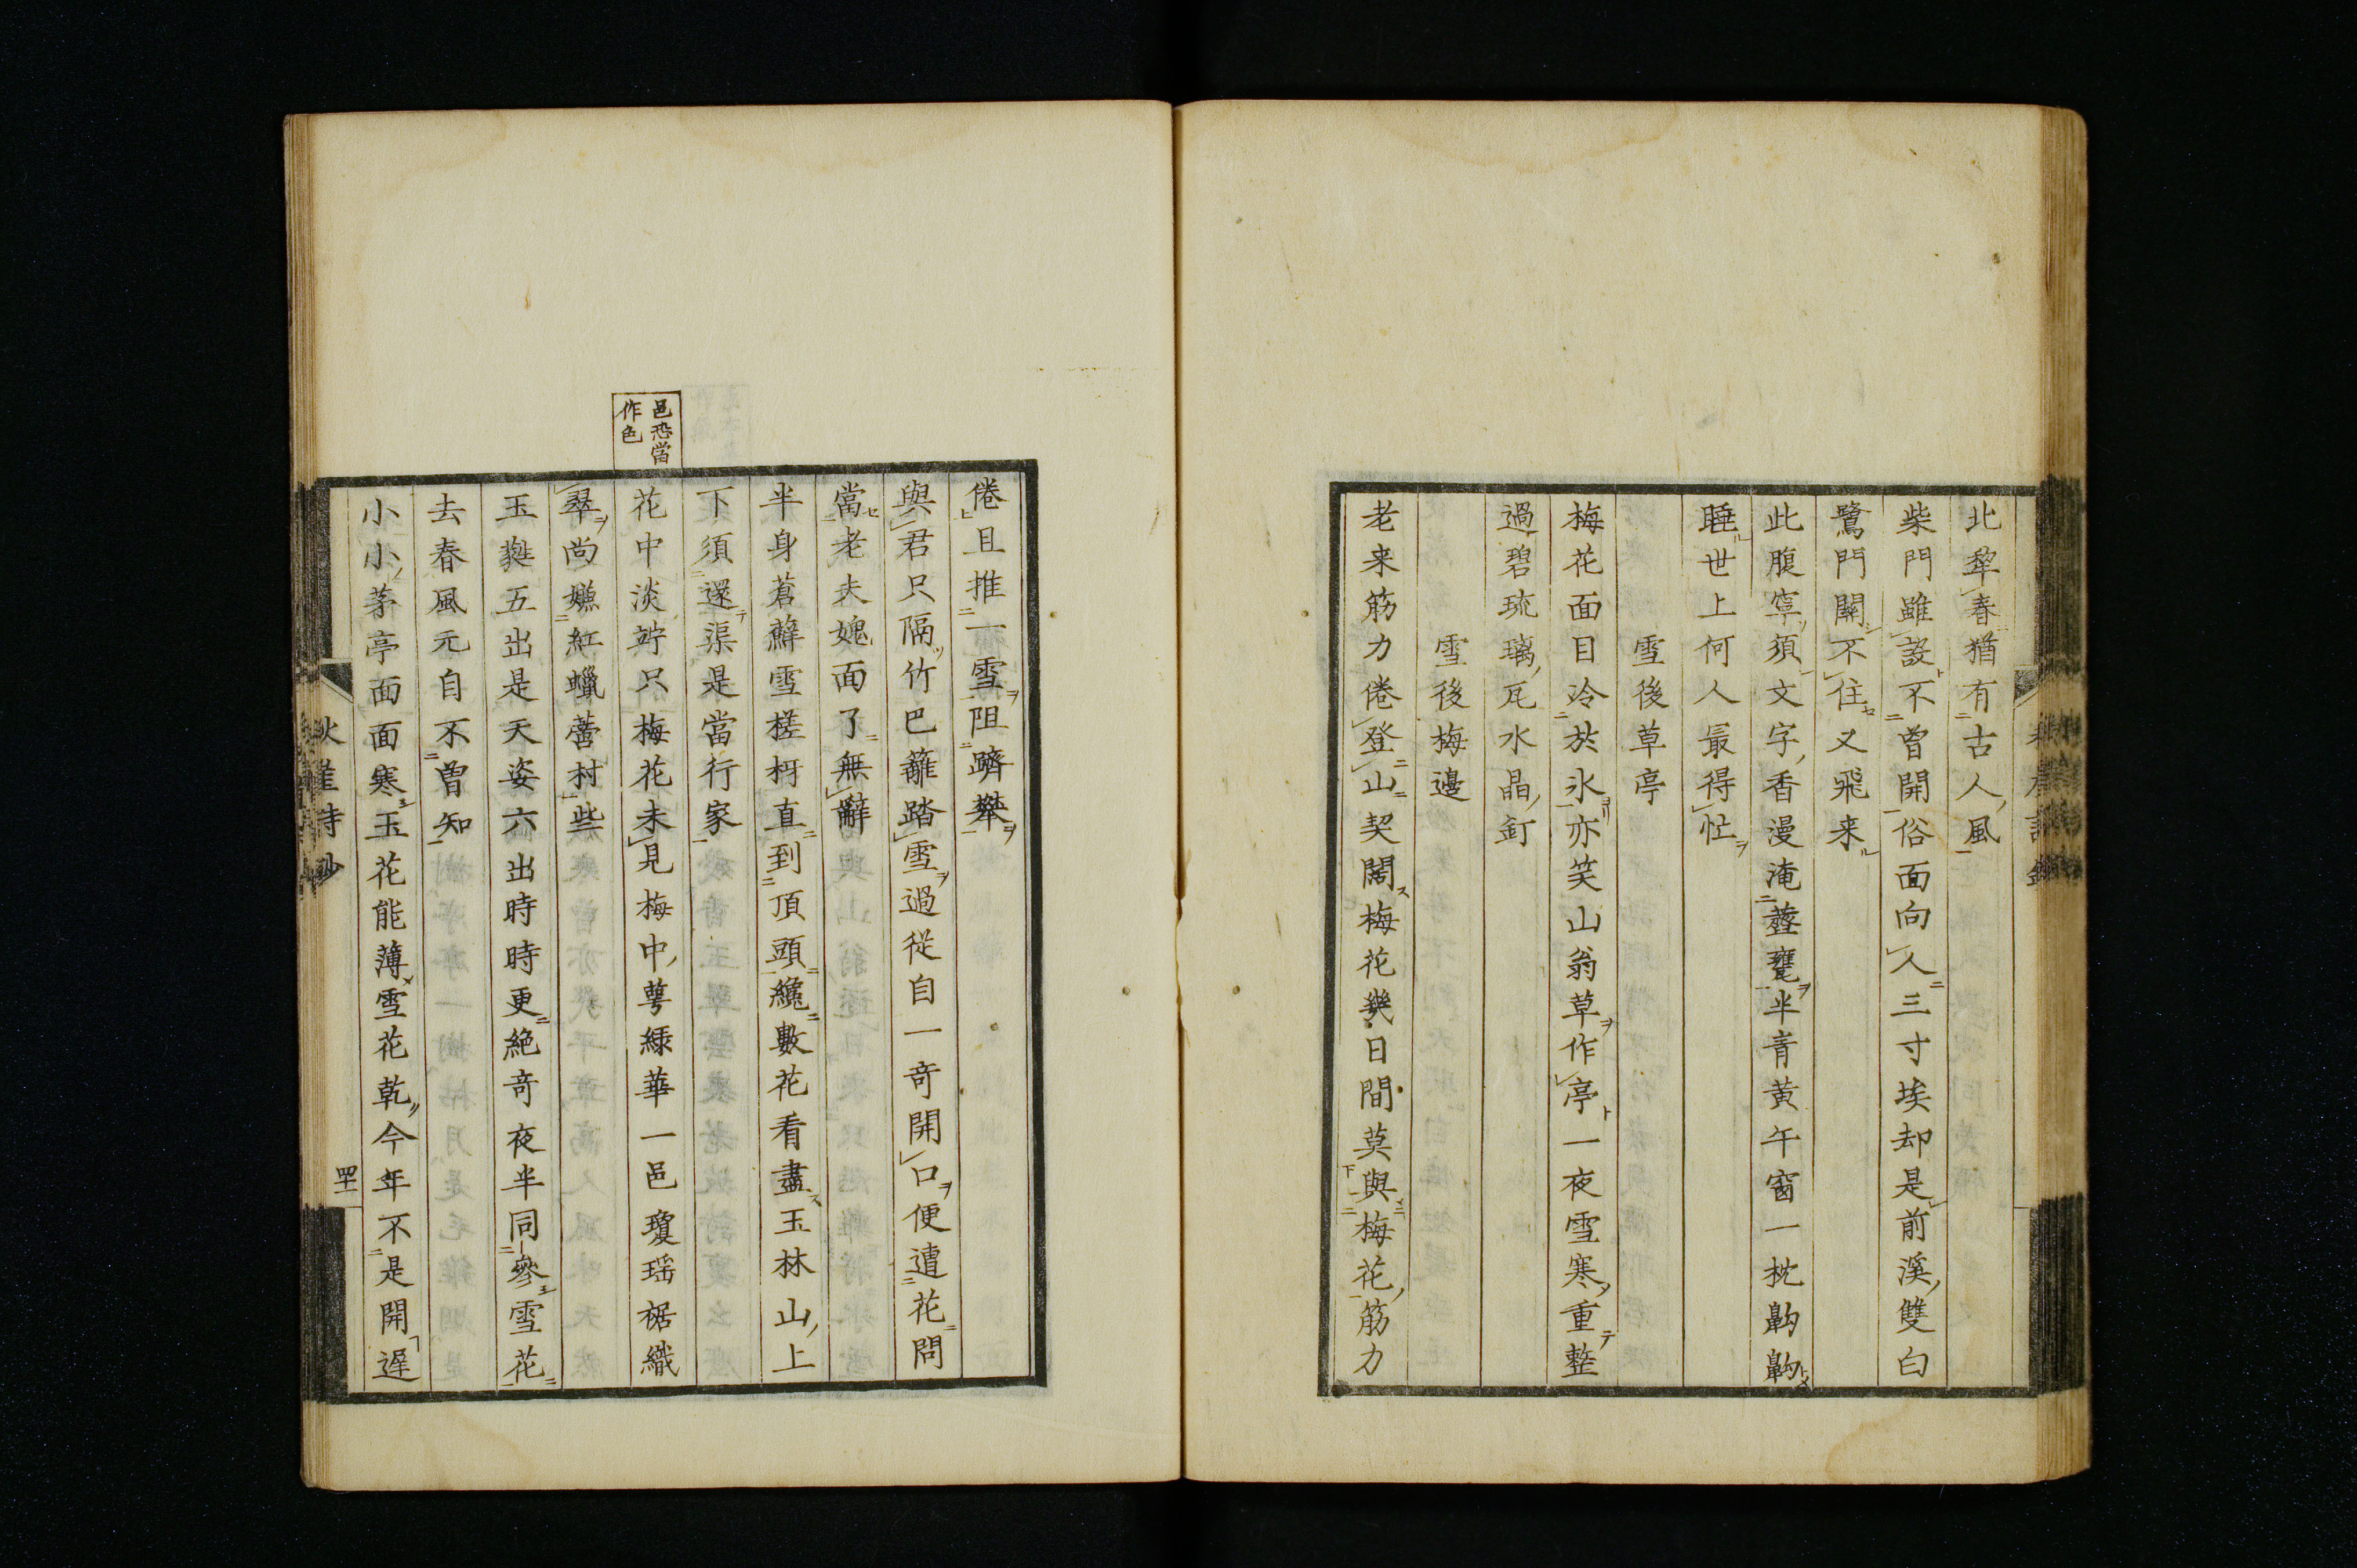 北犂春猶有古人風
柴門雖設不曾開俗面向人三寸埃却是前溪雙白
鷺門關不住又飛来
此腹寧須文字香漫淹虀甕半青黄午窗一枕齁齁
睡世上何人最得忙
雪後草亭
梅花面目冷於氷亦笑山翁草作亭一夜雪寒重整
過碧琉璃瓦水晶釘
雪後梅邊
老来筋力倦登山契闊梅花幾日間莫與梅花筋力
倦且推一雪阻躋攀
與君只隔竹巴籬踏雪過從自一奇開口便遭花問
當老夫媿面了無辭
半身蒼蘚雪槎枒直到頂頭纔數花看盡玉林山上
下須還渠是當行家
邑恐當
作色
花中淡竚只梅花未見梅中萼緑華一邑瓊瑶裾織
翠尚嫌紅蠟蕾村些
玉蕤五出是天姿六出時時更絶奇夜半同參雪花
去春風元自不曾知
小小茅亭面面寒玉花能薄雪花乾今年不是開遲
秋崖詩鈔
四十一